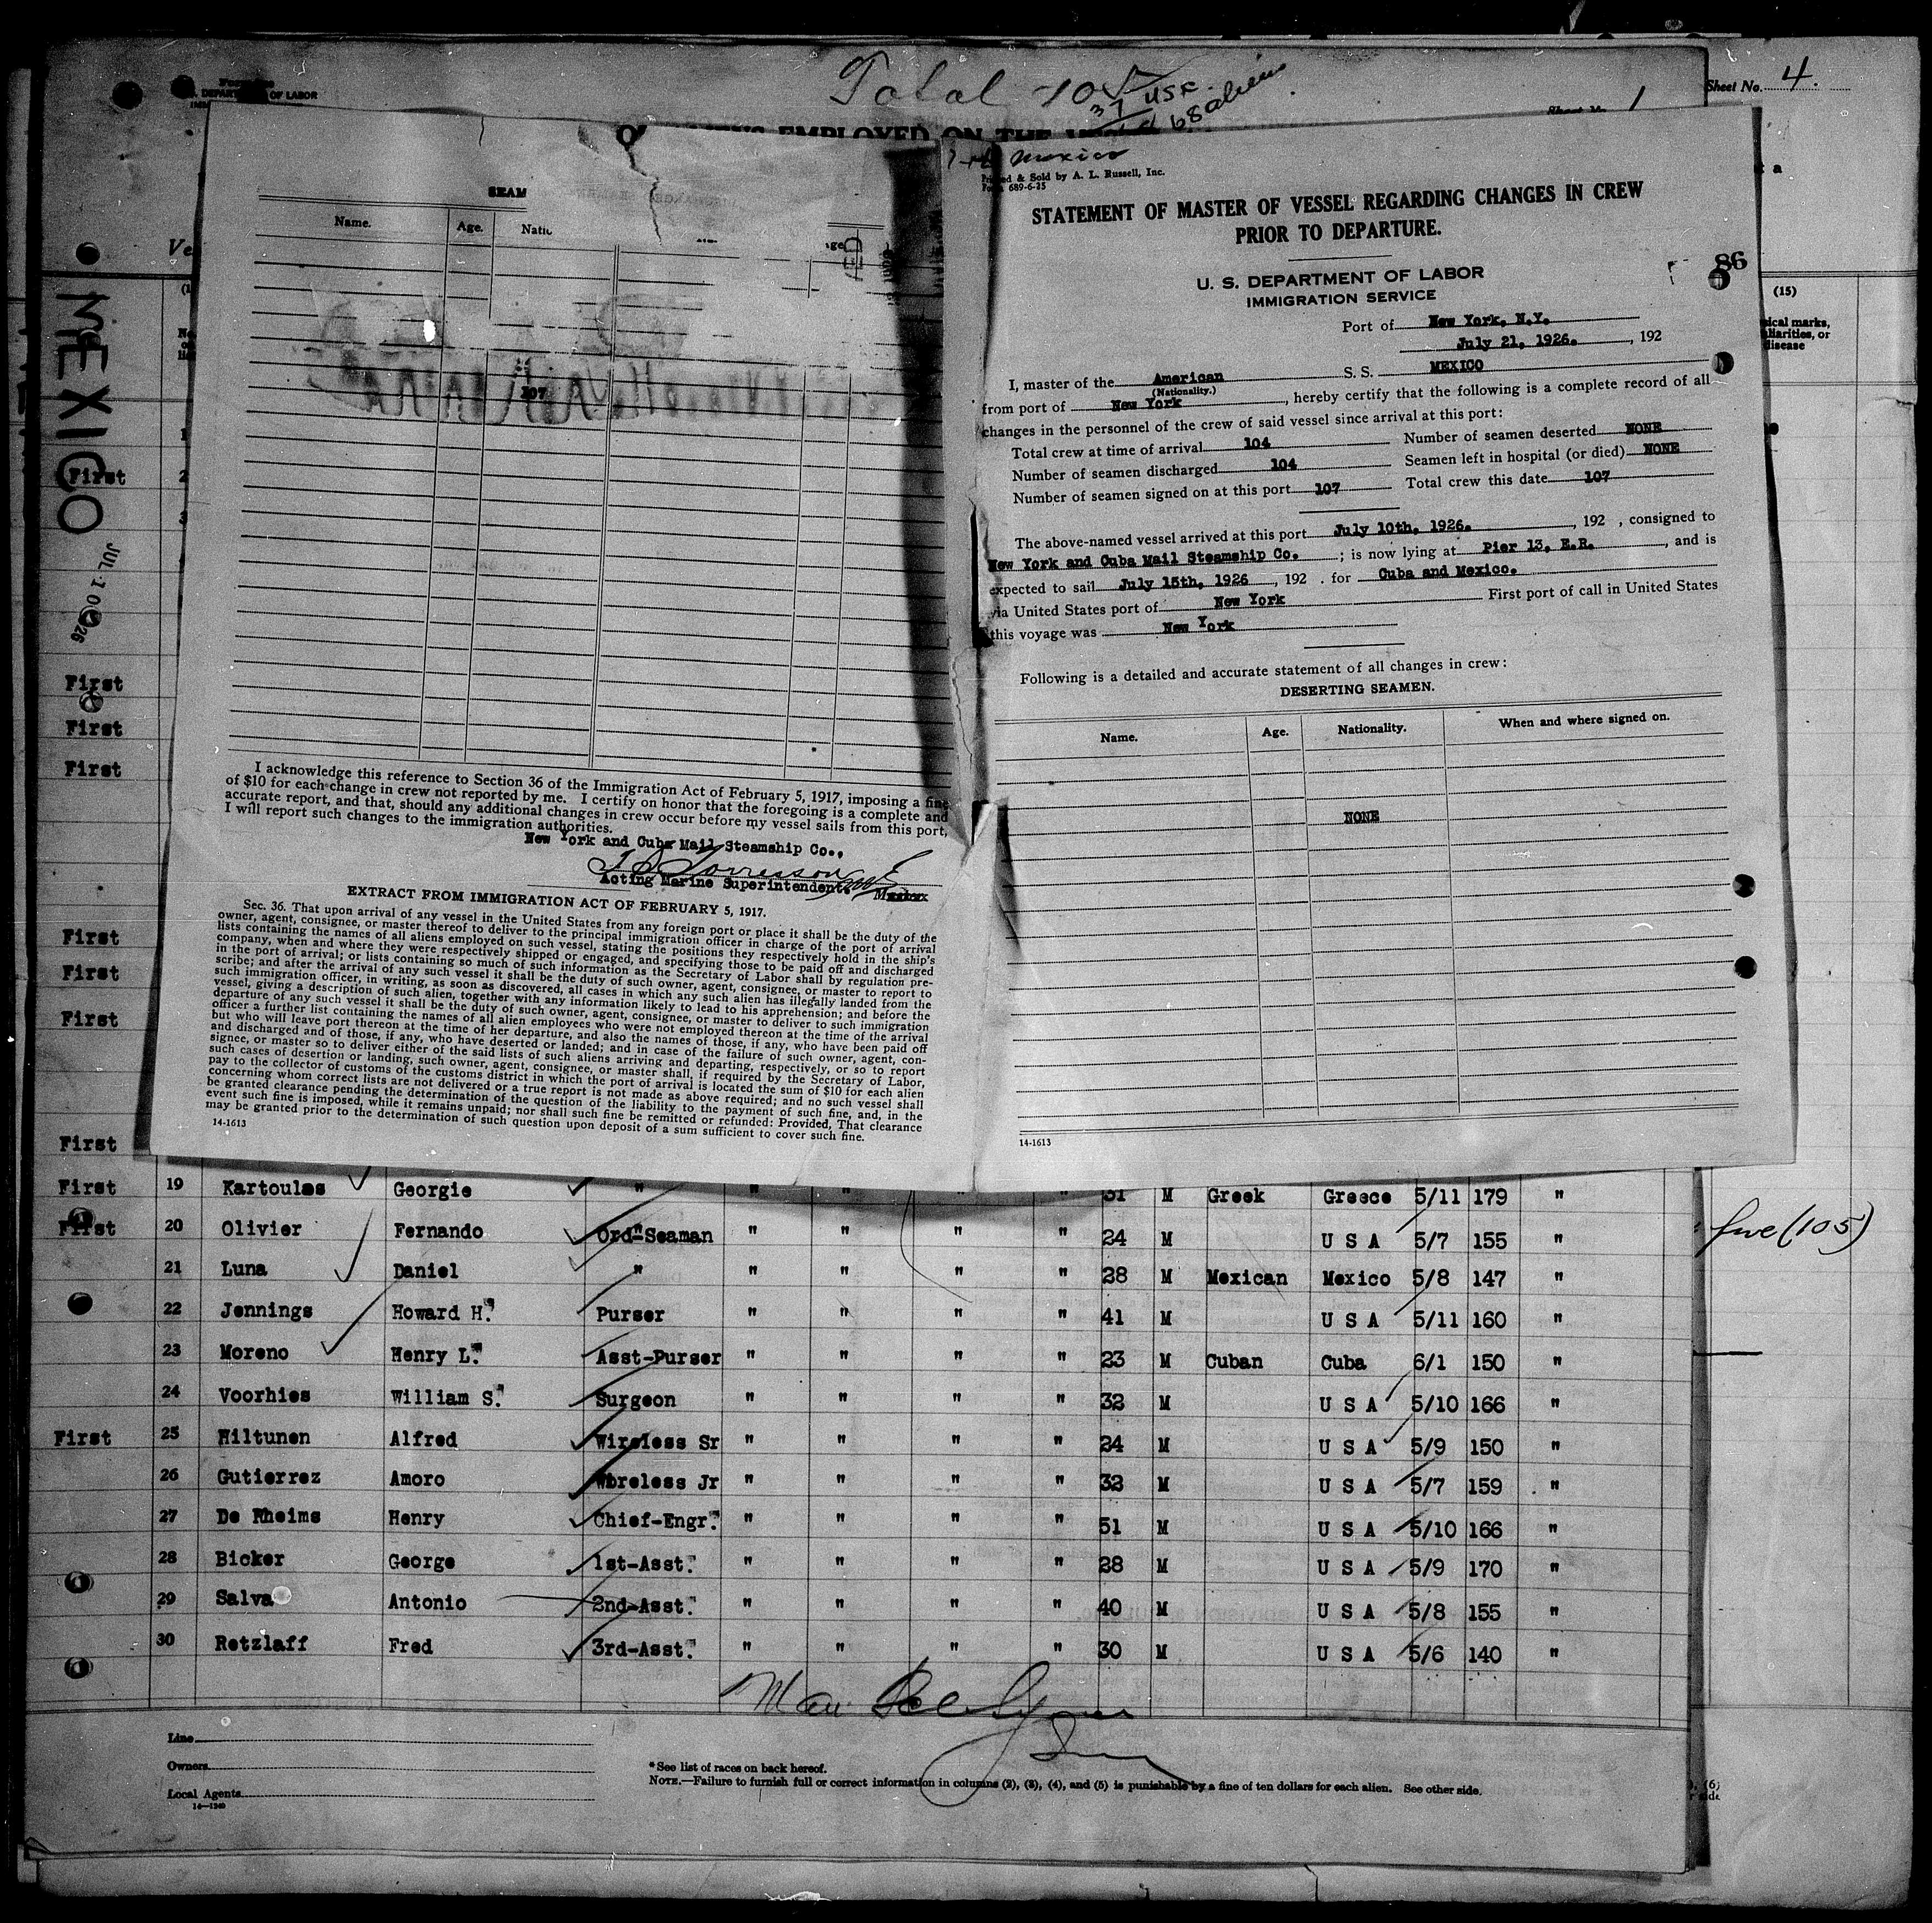 Total 105
37 USC.
68 aliens
Sheet No. 4.
DEPARTMENT OF LABOR
1
EMPLOYED ON THE
MEXICO
JUL 10 1926
(15)
SEAM
Name.
Age.
107
I acknowledge this reference to Section 36 of the Immigration Act of February 5, 1917, imposing a fine
of $10 for each change in crew not reported by me. I certify on honor that the foregoing is a complete and
accurate report, and that, should any additional changes in crew occur before my vessel sails from this port,
I will report such changes to the immigration authorities.
New York and Cuba Mail Steamship Co.,
Acting Marine Superintendent.
Master
EXTRACT FROM IMMIGRATION ACT OF FEBRUARY 5, 1917.
Sec. 36. That upon arrival of any vessel in the United States from any foreign port or place it shall be the duty of the
owner, agent, consignee, or master thereof to deliver to the principal immigration officer in charge of the port of arrival
lists containing the names of all aliens employed on such vessel, stating the positions they respectively hold in the ship's
company, when and where they were respectively shipped or engaged, and specifying those to be paid off and discharged
in the port of arrival; or lists containing so much of such information as the Secretary of Labor shall by regulation pre-
scribe; and after the arrival of any such vessel it shall be the duty of such owner, agent, consignee, or master to report to
such immigration officer, in writing, as soon as discovered, all cases in which any such alien has illegally landed from the
vessel, giving a description of such alien, together with any information likely to lead to his apprehension; and before the
departure of any such vessel it shall be the duty of such owner, agent, consignee, or master to deliver to such immigration
officer a further list containing the names of all alien employees who were not employed thereon at the time of the arrival
but who will leave port thereon at the time of her departure, and also the names of those, if any, who have been paid off
and discharged and of those, if any, who have deserted or landed; and in case of the failure of such owner, agent, con-
signee, or master so to deliver either of the said lists of such aliens arriving and departing, respectively, or so to report
such cases of desertion or landing, such owner, agent, consignee, or master shall, if required by the Secretary of Labor,
pay to the collector of customs of the customs district in which the port of arrival is located the sum of $10 for each alien
concerning whom correct lists are not delivered or a true report is not made as above required; and no such vessel shall
be granted clearance pending the determination of the question of the liability to the payment of such fine, and, in the
event such fine is imposed, while it remains unpaid; nor shall such fine be remitted or refunded: Provided, That clearance
may be granted prior to the determination of such question upon deposit of a sum sufficient to cover such fine.
14-1613
Mexico
Printed & Sold by A. L. Russell, Inc.
Form 689-6-25
STATEMENT OF MASTER OF VESSEL REGARDING CHANGES IN CREW
PRIOR TO DEPARTURE.
86
U. S. DEPARTMENT OF LABOR
IMMIGRATION SERVICE
Port of New York, N.Y.
July 21, 1926. , 192
I, master of the American S. S. MEXICO
(Nationality.)
from port of New York , hereby certify that the following is a complete record of all
changes in the personnel of the crew of said vessel since arrival at this port:
Total crew at time of arrival 104 Number of seamen deserted NONE
Number of seamen discharged 104 Seamen left in hospital (or died) NONE
Number of seamen signed on at this port 107 Total crew this date 107
The above-named vessel arrived at this port July 10th, 1926. , 192 , consigned to
New York and Cuba Mail Steamship Co. ; is now lying at Pier 13, E.R. , and is
expected to sail July 15th, 1926 , 192 . for Cuba and Mexico.
via United States port of New York First port of call in United States
this voyage was New York
Following is a detailed and accurate statement of all changes in crew:
DESERTING SEAMEN.
Name. Age. Nationality. When and where signed on.
NONE
14-1613
First
First
First
First
First
First
First
First
First 19 Kartoulas Georgie " " " " " 31 M Greek Greece 5/11 179 "
First 20 Olivier Fernando Ord" Seaman " " " " 24 M U S A 5/7 155 "
five (105)
21 Luna Daniel " " " " " 28 M Mexican Mexico 5/8 147 "
22 Jennings Howard H." Purser " " " " 41 M U S A 5/11 160 "
23 Moreno Henry L." Asst-Purser " " " " 23 M Cuban Cuba 6/1 150 "
24 Voorhies William S." Surgeon " " " " 32 M U S A 5/10 166 "
First 25 Hiltunen Alfred Wireless Sr " " " " 24 M U S A 5/9 150 "
26 Gutierrez Amoro Wireless Jr " " " " 32 M U S A 5/7 159 "
27 De Rheims Henry Chief-Engr." " " " " 51 M U S A 5/10 166 "
28 Bicker George 1st-Asst." " " " " 28 M U S A 5/9 170 "
29 Salva Antonio 2nd-Asst." " " " " 40 M U S A 5/8 155 "
30 Retzlaff Fred 3rd-Asst." " " " " 30 M U S A 5/6 140 "
Line
Owners
Local Agents
14-1240
* See list of races on back hereof.
NOTE.—Failure to furnish full or correct information in columns (2), (3), (4), and (5) is punishable by a fine of ten dollars for each alien. See other side.